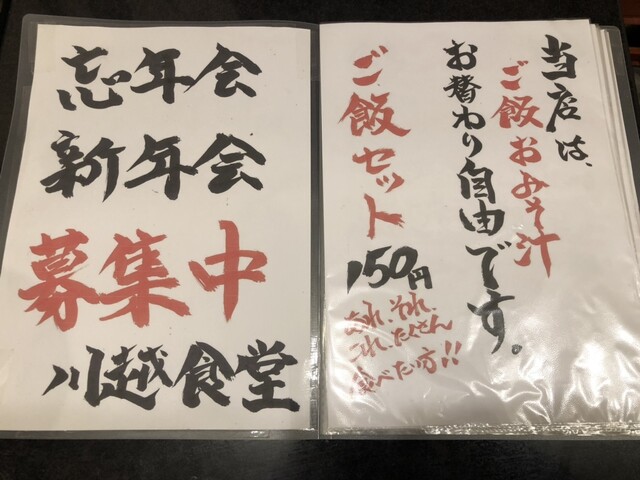 忘年会
新年会
募集中
川越食堂
当店は、
ご飯おみそ汁
お替わり自由です。
ご飯セット
150円
あれ、それ、
これ、たくさん
食べたい方!!